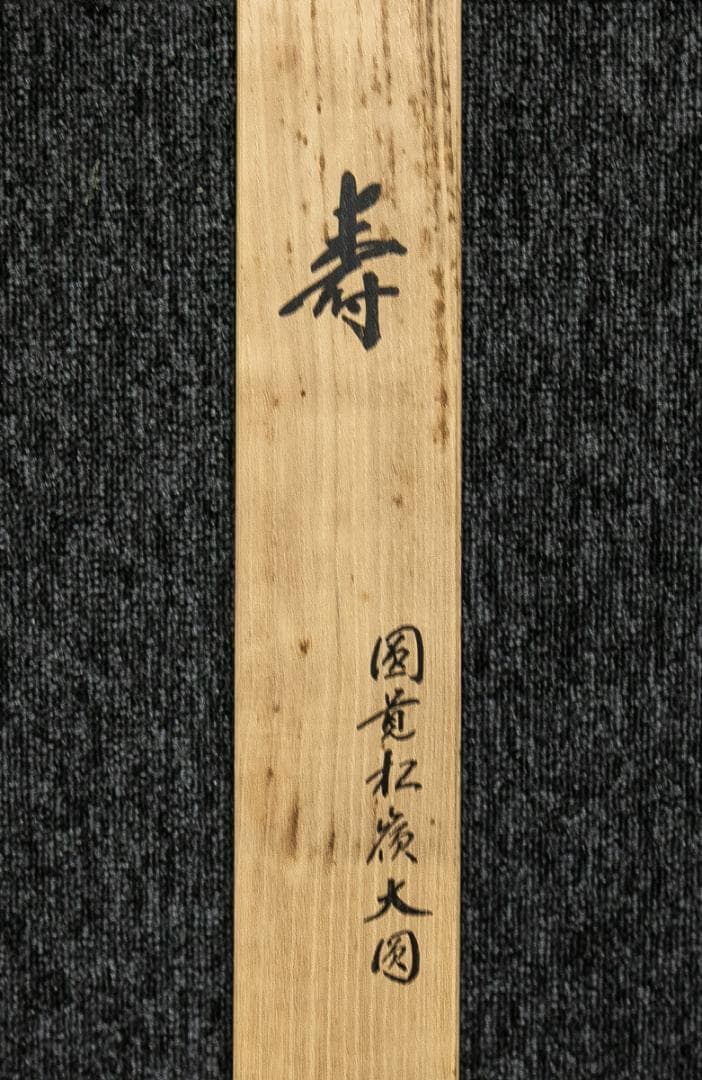 寿
圓覚松嶺大圓